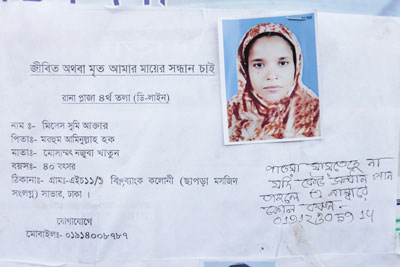 জীবিত অথবা মৃত আমার মায়ের সন্ধান চাই
রানা প্লাজা ৪র্থ তলা (ডি-লাইন)
নাম ঃ- মিসেস সুমি আক্তার
পিতাঃ- মরহুম আমিনুল্লাহ হক
মাতাঃ- মোসাম্মৎ নজুবা খাতুন
বয়সঃ- ৪০ বৎসর
ঠিকানাঃ- গ্রাম:-এইচ১১/১ বিশ্বব্যাংক কলোনী (ছাপড়া মসজিদ
সংলগ্ন) সাভার, ঢাকা ।
যোগাযোগে
মোবাইলঃ- ০১৯১৪০০৮৭৮৭
না
যদি কেউ সন্ধান পান
এ নাম্বারে
ফোন